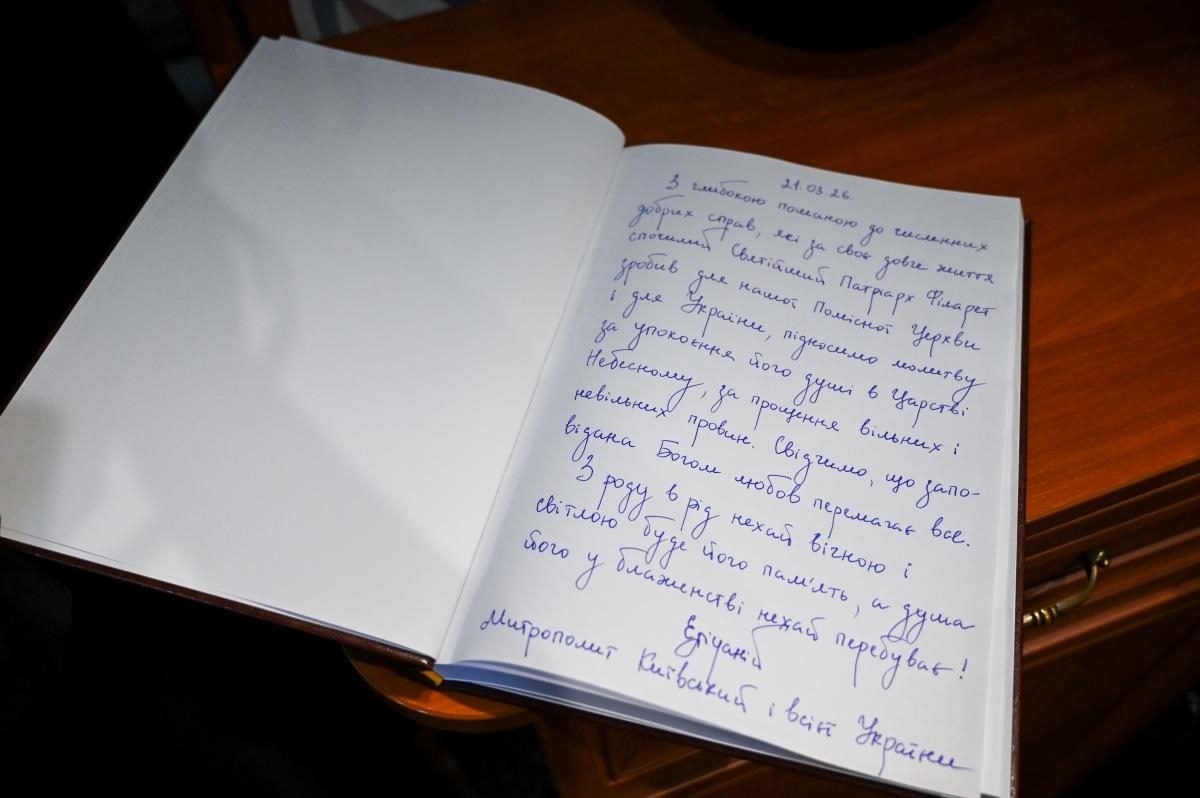 21.03.26.
З глибокою пошаною до численних
добрих справ, які за своє довге життя
спочилий Святійший Патріарх Філарет
зробив для нашої Помісної Церкви
і для України, підносимо молитву
за упокоєння його душі в Царстві
Небесному, за прощення вільних і
невільних провин. Свідчимо, що запо-
відана Богом любов перемагає все.
З роду в рід нехай вічною і
світлою буде його пам'ять, а душа
його у блаженстві нехай перебуває!
Епіфаній
Митрополит Київський і всієї України